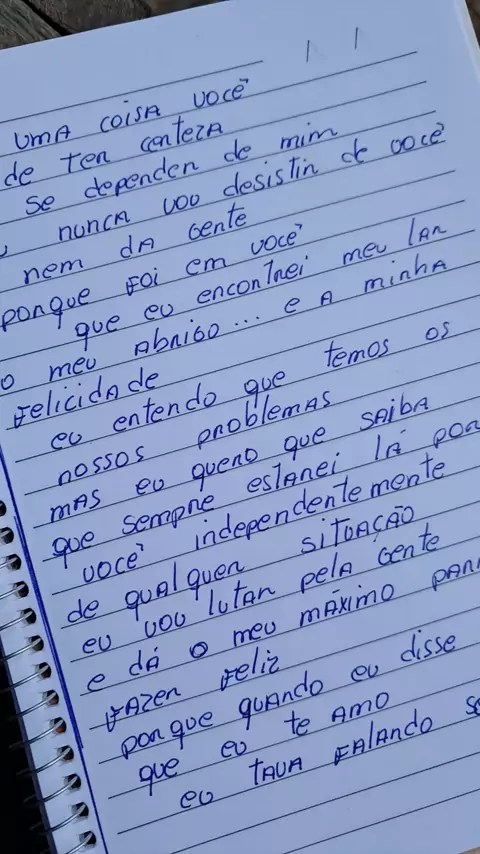 UMA COISA VOCÊ
de TER CERTEZA
Se depender de mim
nunca vou desistir de você
nem da gente
porque foi em você
que eu encontrei meu lar
o meu abrigo... e a minha
felicidade
eu entendo que temos os
nossos problemas
mas eu quero que saiba
que sempre estarei lá por
você independentemente
de qualquer situação
eu vou lutar pela gente
e dá o meu máximo para
fazer feliz
porque quando eu disse
que eu te amo
eu tava falando